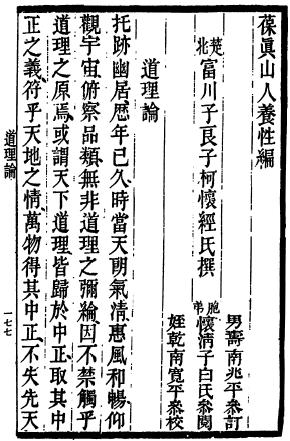 葆眞山人養性編
楚北富川子良子柯懷經氏撰
男壽南兆平叅訂
胞弟懷清子白氏叅閱
姪乾南寬平叅校
道理論
托跡幽居歷年已久時當天朗氣清惠風和暢仰
觀宇宙俯察品類無非道理之彌綸因不禁觸乎
道理之原焉或謂天下道理皆歸於中正取其中
正之義符乎天地之情萬物得其中正不失先天
道理論
一七七